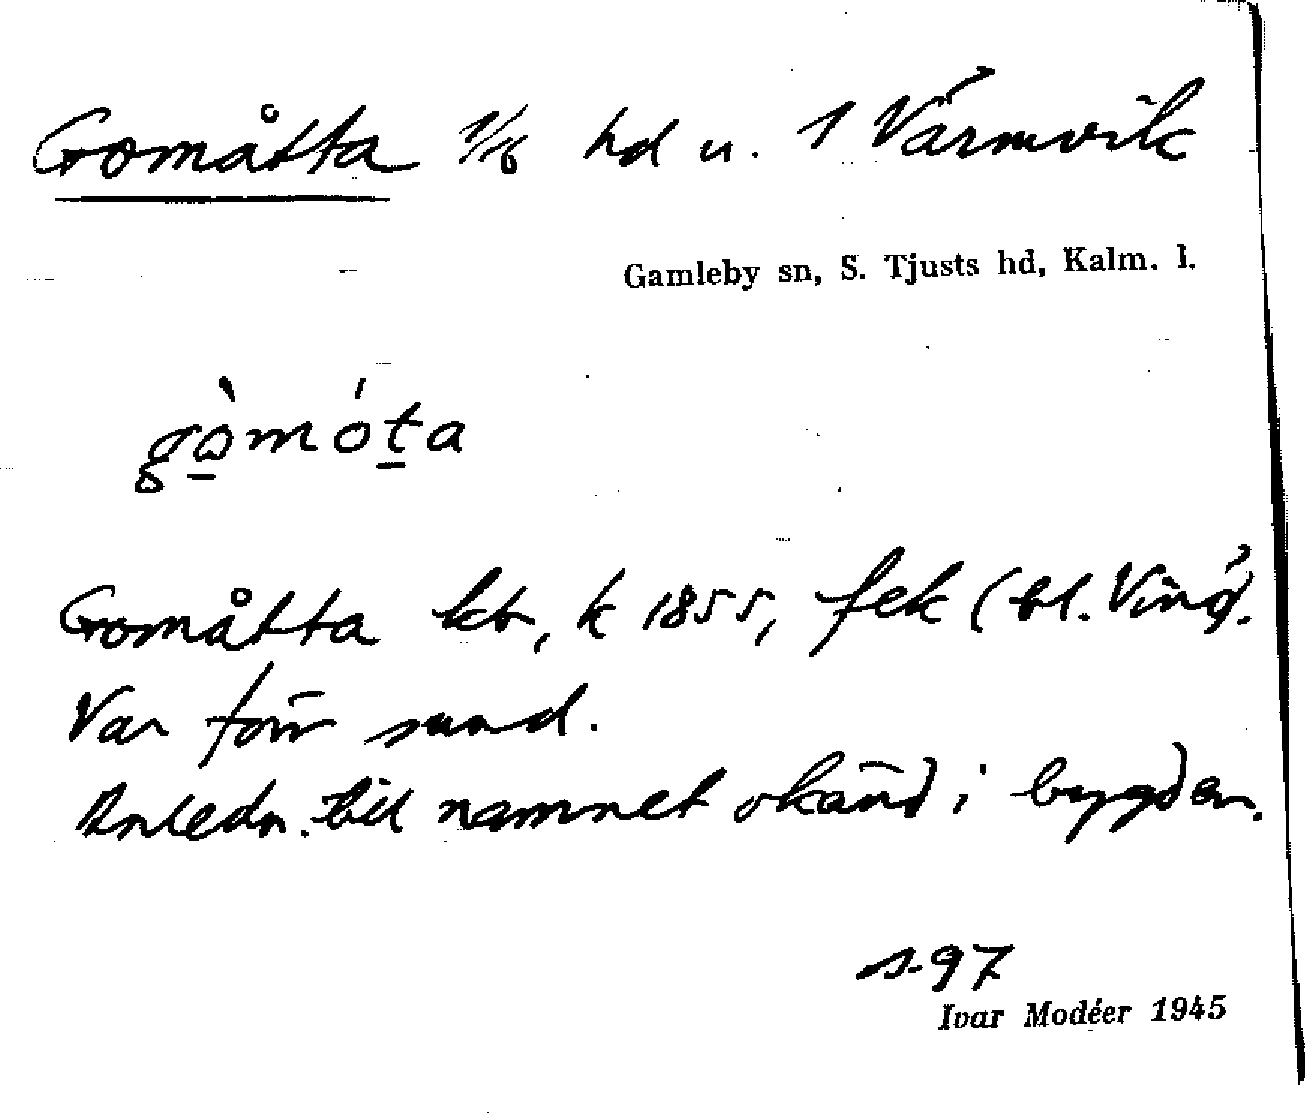 Gomåtta 1/16 hd u. 1 Värmvik
Gamleby sn, S. Tjusts hd, Kalm. l.
gòmóta
Gomåtta kb, k 1855, fek (bl. Vinö).
Var förr sund.
Anledn. till namnet okänd i bygden.
s. 97
Ivar Modéer 1945